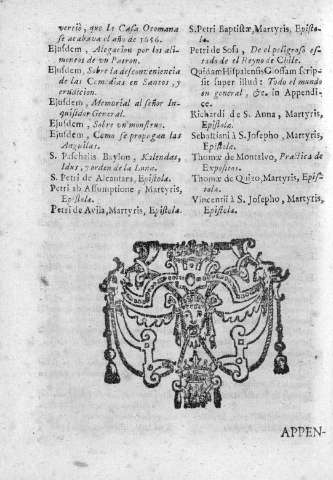 vertió, que la Casa Otomana
se acabava el año de 1656.
Ejusdem, Alegacion por los ali-
mentos de un Patron.
Ejusdem, Sobre la desconveniencia
de las Comedias en Santos, y
erudicion.
Ejusdem, Memorial al señor In-
quisidor General.
Ejusdem, Sobre un monstruo.
Ejusdem, Como se propagan las
Anguilas.
S. Paschalis Baylon, Kalendas,
Idus, y orden de la Luna.
S. Petri de Alcantara, Epistola.
Petri ab Assumptione, Martyris,
Epistola.
Petri de Avila, Martyris, Epistola.
S. Petri Baptistæ, Martyris, Episto-
la.
Petri de Sosa, De el peligroso es-
tado de el Reyno de Chile.
Quidam Hispalensis Glossam scrip-
sit super illud: Todo el mundo
en general, &c. in Appendi-
ce.
Richardi de S. Anna, Martyris,
Epistola.
Sebastiani à S. Josepho, Martyris,
Epistola.
Thomæ de Montalvo, Practica de
Expositos.
Thomæ de Quizo, Martyris, Epis-
tola.
Vincentii à S. Josepho, Martyris,
Epistola.
APPEN-